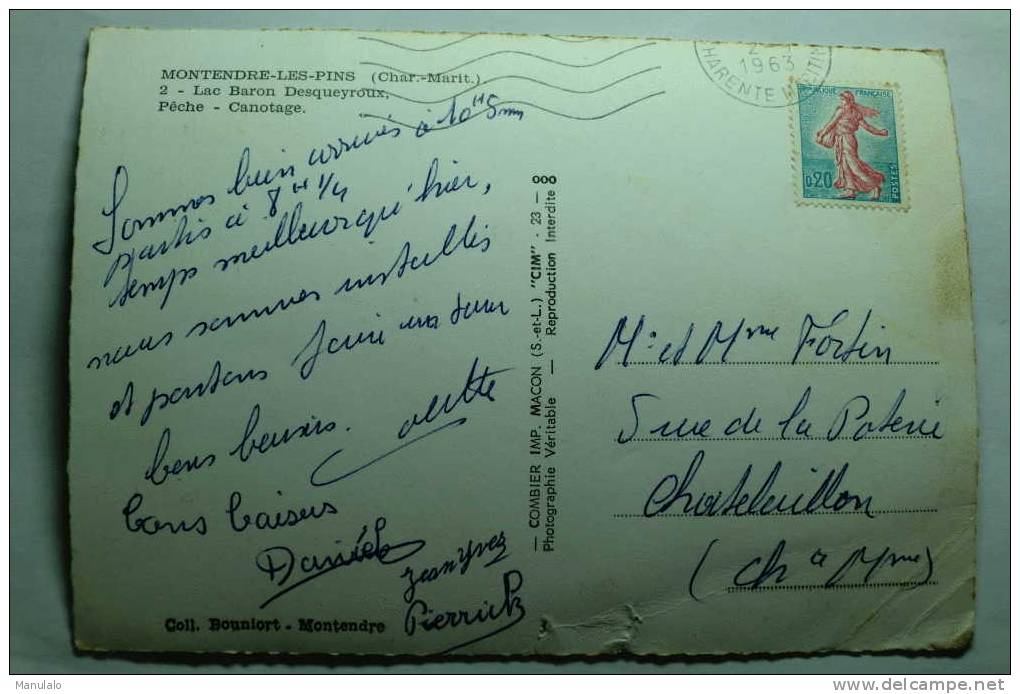 MONTENDRE-LES-PINS (Char.-Marit.)
2 - Lac Baron Desqueyroux,
Pêche - Canotage.
Sommes bien arrivés à 10 H 5 mn
partis à 8 H 1/4
temps meilleur qu'hier,
nous sommes installés
et partons faire un tour
bons baisers.
bons baisers
Danièle
Jean Yves
Pierrick
Coll. Bouniort - Montendre
— COMBIER IMP. MACON (S.-et-L.) "CIM" - 23 — 000
Photographie Véritable — Reproduction Interdite
2
1963
CHARENTE MARITIME
REPUBLIQUE FRANÇAISE
0,20
POSTES
Mr et Mme Fortin
5 rue de la Poterie
Chatelaillon
(Ch te Mme)
Manulalo
delcampe.net